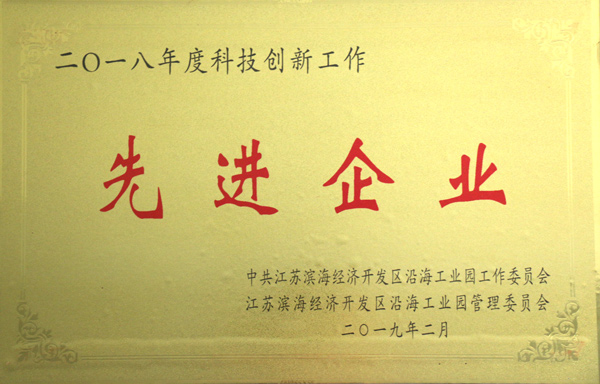 二〇一八年度科技创新工作
先进企业
中共江苏滨海经济开发区沿海工业园工作委员会
江苏滨海经济开发区沿海工业园管理委员会
二〇一九年二月